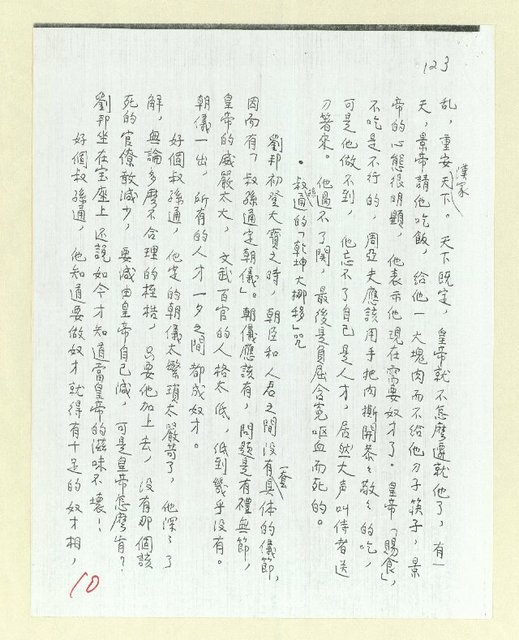 123
亂，重安漢家天下。天下既定，皇帝就不怎麼遷就他了，有一
天，景帝請他吃飯，給他一大塊肉而不給他刀子筷子，景
帝的心態很明顯，他表示他現在需要奴才了。皇帝「賜食」，
不吃是不行的，周亞夫應該用手把肉撕開恭恭敬敬的吃，
可是他做不到，他忘不了自己是人才，居然大声叫侍者送
刀箸來。他過不了関，最後是負屈含冤嘔血而死的。
•叔孫通的「乾坤大挪移」咒
劉邦初登大寶之時，朝臣和人君之間沒有一套具体的儀節，
因而有「叔孫通定朝儀」。朝儀應該有，問題是有禮無節，
皇帝的威嚴太大，文武百官的人格太低，低到幾乎沒有。
朝儀一出，所有的人才一夕之間都成奴才。
好個叔孫通，他定的朝儀太繁瑣太嚴苛了，他深深了
解，無論多麼不合理的桎梏，只要他加上去，沒有那個該
死的官僚敢減少，要減由皇帝自己減，可是皇帝怎麼肯？
劉邦坐在宝座上还說如今才知道當皇帝的滋味不壞！
好個叔孫通，他知道要做奴才就得有十足的奴才相，
10